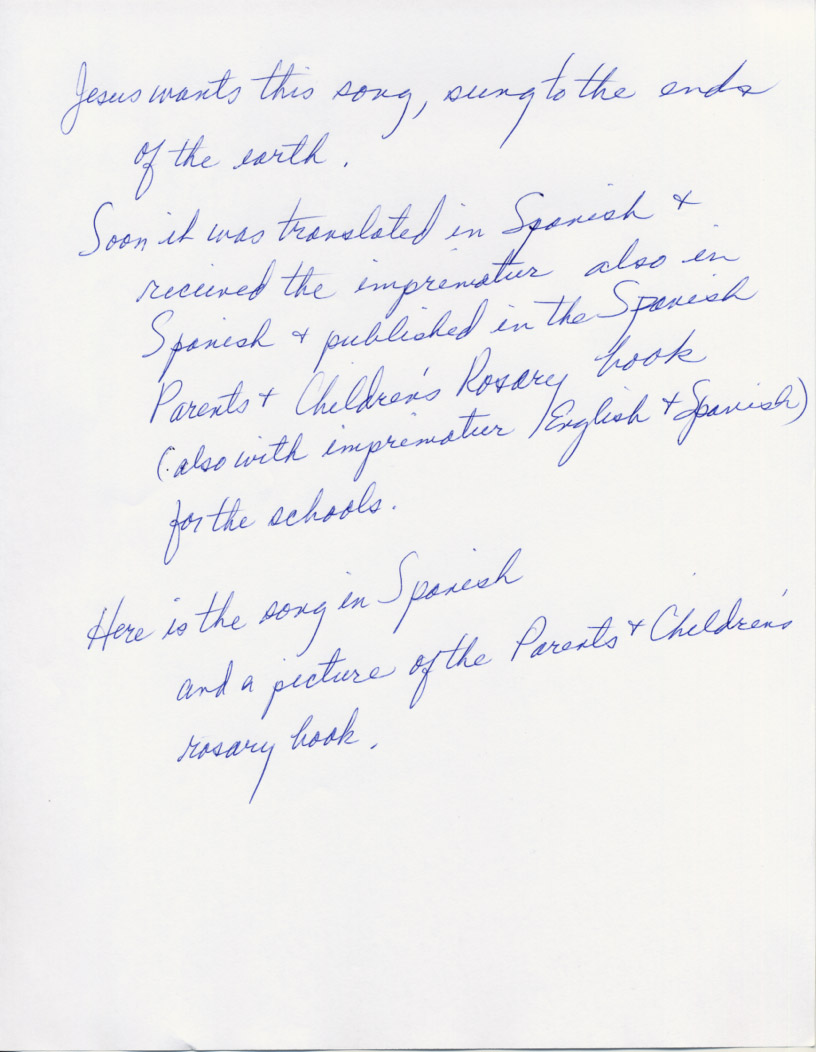 Jesus wants this song, sung to the ends
of the earth.
Soon it was translated in Spanish &
received the imprematur also in
Spanish & published in the Spanish
Parents & Children's Rosary book
(also with imprematur /English & Spanish)
for the schools.
Here is the song in Spanish
and a picture of the Parents & Children's
rosary book.